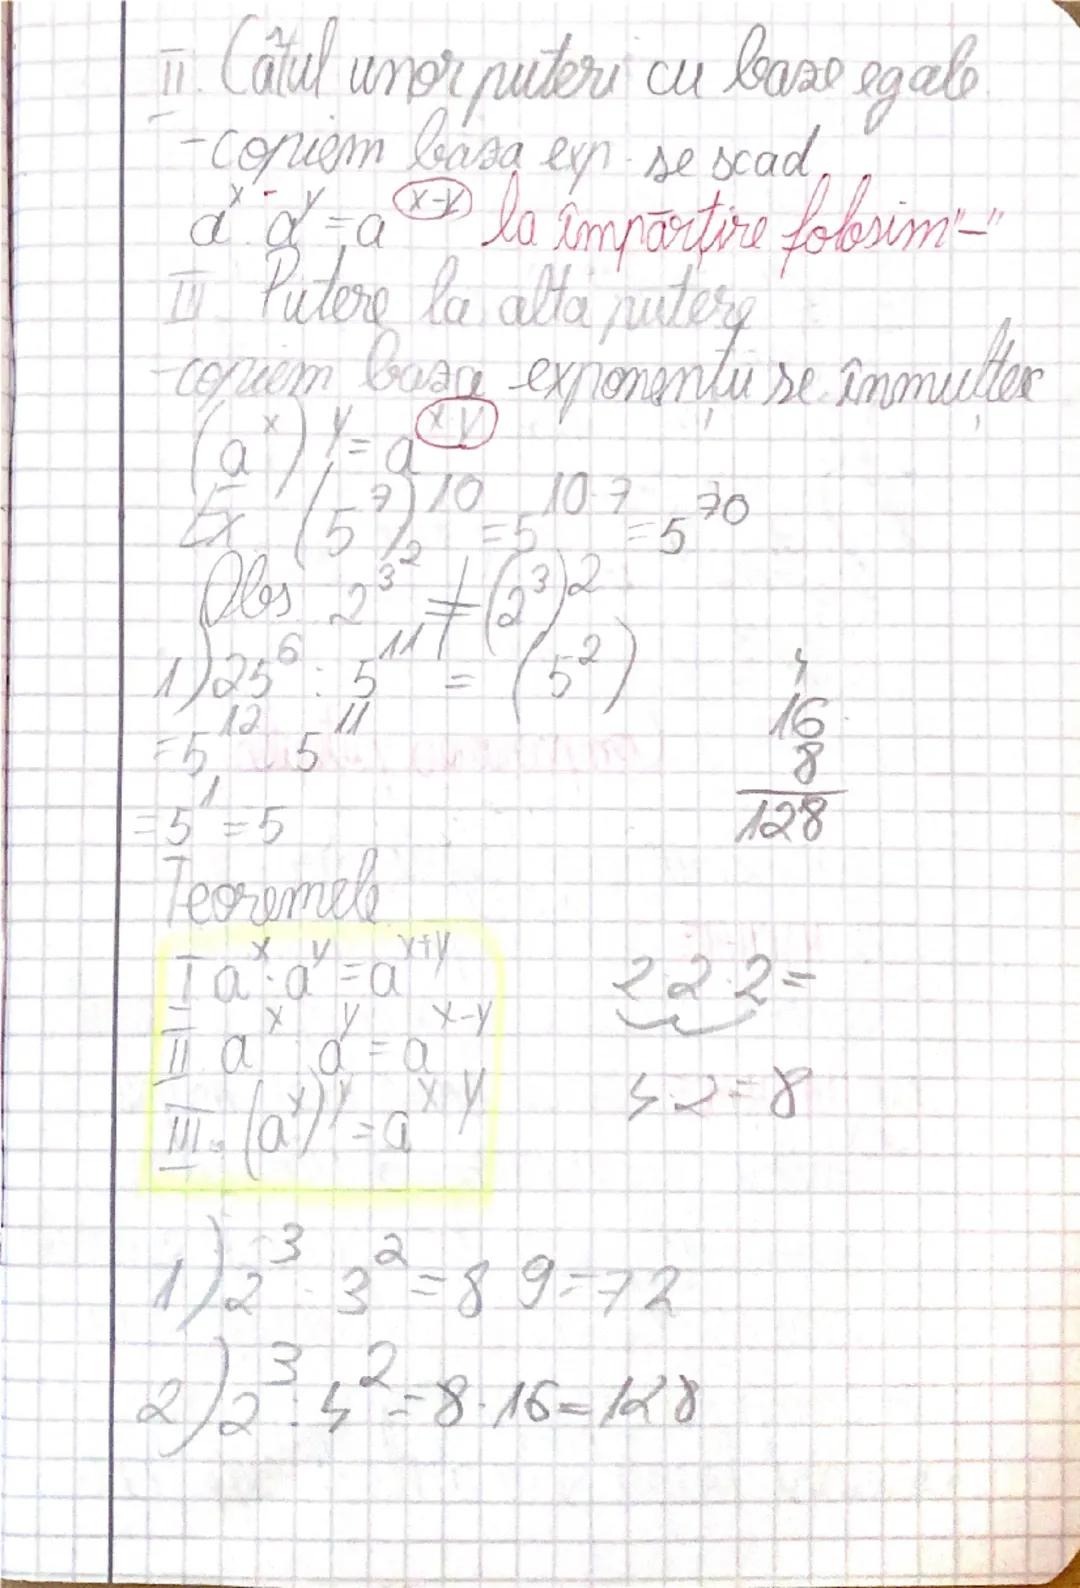 II. Câtul unor puteri cu baze egale
-copiem baza exp. se scad
a^x : a^y = a^(x-y) la împărțire folosim "-"
III Putere la altă putere
-copiem baza exponenții se înmulțesc
(a^x)^y = a^(x·y)
Ex (5^7)^10 = 5^(10·7) = 5^70
Obs 2^3^2 ≠ (2^3)^2
1) 25^6 : 5^11 = (5^2)
= 5^12 5^11
= 5^1 = 5
4
16
8
128
Teoremele
I a^x · a^y = a^(x+y)
II a^x : a^y = a^(x-y)
III. (a^x)^y = a^(x·y)
2·2·2=
4·2=8
1) 2^3 · 3^2 = 8 9 = 72
2) 2^3 · 4^2 = 8·16 = 128